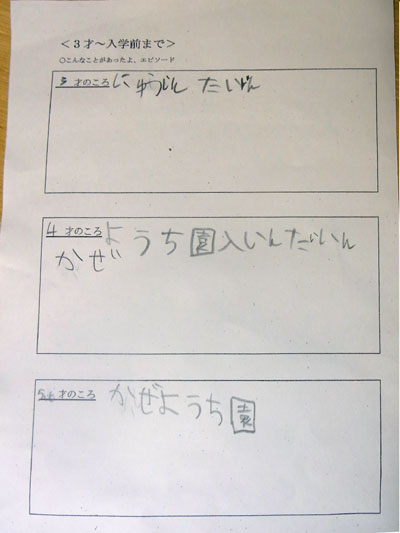 ＜３才～入学前まで＞
○こんなことがあったよ、エピソード
3 才のころ にゅういん たいいん
4 才のころ ようち園入いんたいいん
かぜ
5才のころ かぜようち園